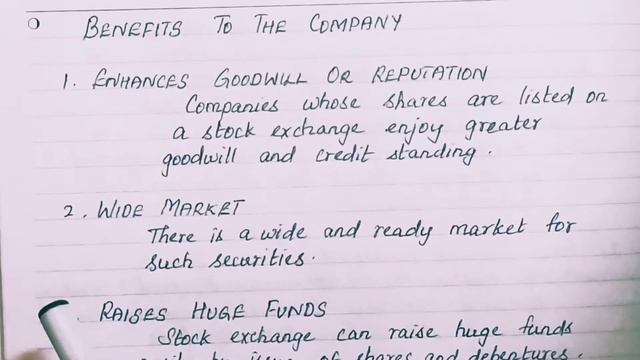 BENEFITS TO THE COMPANY
1. ENHANCES GOODWILL OR REPUTATION
Companies whose shares are listed on
a stock exchange enjoy greater
goodwill and credit standing.
2. WIDE MARKET
There is a wide and ready market for
such securities.
RAISES HUGE FUNDS
Stock exchange can raise huge funds
of shares and debentures.